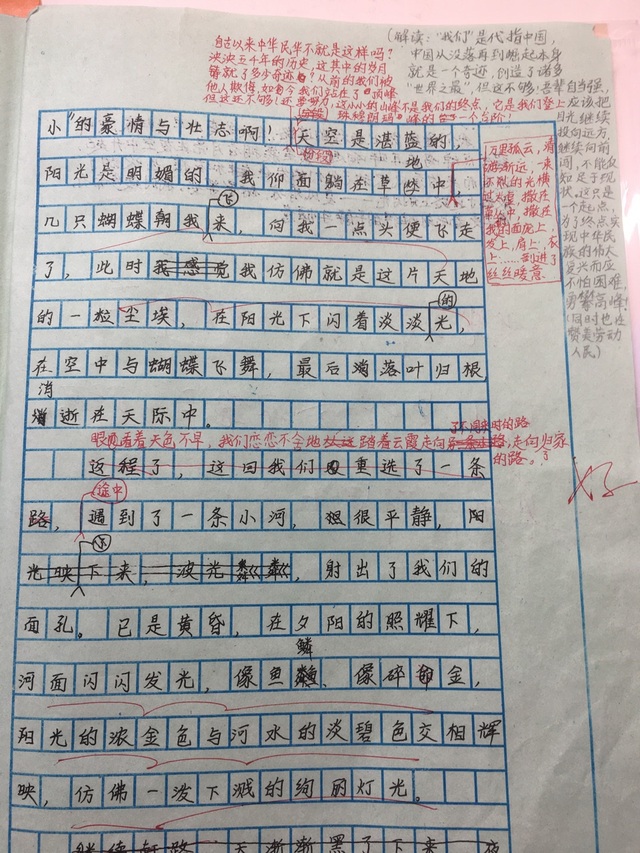 自古以来中华民华不就是这样吗?
泱泱五千年的历史,这其中的岁月
奇迹。从前的我们被
他人欺辱,如今我们站在了顶峰
但这还不够!还要努力,这小小的山峰不是我们的终点,它是我们登上
珠穆朗玛峰的一个台阶!
(解读:"我们"是代指中国,
中国从没落再到崛起本身
就是一个奇迹,创造了诸多
"世界之最",但这不够!吾辈自当强,
应该把
目光继续
投向远方,
继续向前
不能
知足于现
状,这只是
一个起点,
为了终点实
现中华民
族的伟大
复兴而应
不怕困难,
勇攀高峰!
(同时也在
赞美劳动
人民)
小"的豪情与壮志啊!天空是湛蓝的,
分段
阳光是明媚的,我仰面躺在草地中,
万里孤云,清
游渐远,一束
的光横
过太空,撒在
中,撒在
我的面庞上,
发上,肩上,衣
上……到进了
丝丝暖意.
飞
几只蝴蝶朝我来,向我一点头便飞走
了,此时我感觉我仿佛就是这片天地
的
的一粒尘埃,在阳光下闪着淡淡光,
在空中与蝴蝶飞舞,最后落叶归根,
消
逝在天际中。
眼看着天色不早,我们恋恋不舍地踏着云霞走向了不同来时的路,走向归家
的路。
返程了,这回我们重选了一条
途中
路,遇到了一条小河,很平静,阳
光映下来,波光粼粼,射出了我们的
面孔。已是黄昏,在夕阳的照耀下,
鳞
河面闪闪发光,像鱼、像碎金,
阳光的浓金色与河水的淡碧色交相辉
映,仿佛一泼下溅的绚丽灯光。
继续赶路,天渐渐黑了下来,夜